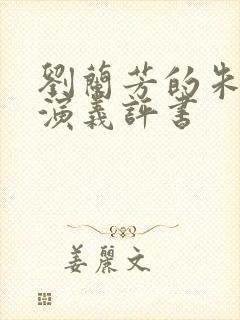 劉蘭芳的朱
演義評書
姜麗文